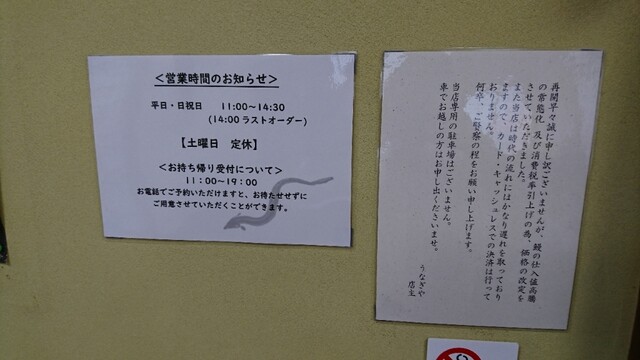 <営業時間のお知らせ>
平日・日祝日 11:00~14:30
(14:00 ラストオーダー)
【土曜日 定休】
<お持ち帰り受付について>
11:00~19:00
お電話でご予約いただけますと、お待たせせずに
ご用意させていただくことができます。
再開早々誠に申し訳ございませんが、鰻の仕入値高騰
の常態化 及び消費税率引上げの為、価格の改定を
させていただきました。
また当店は時代の流れにはかなり遅れを取っており
ますので、カード・キャッシュレスでの決済は行って
おりません。
何卒、ご賢察の程をお願い申し上げます。
当店専用の駐車場はございません。
車でお越しの方はお申し出くださいませ。
うなぎや
店主